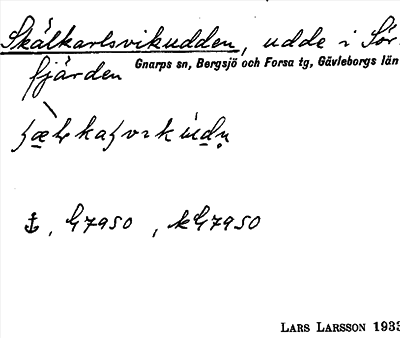 Skålkarlsvikudden, udde i Sör-
fjärden Gnarps sn, Bergsjö och Forsa tg, Gävleborgs län
⚓, G7950, kG7950
LARS LARSSON 1933